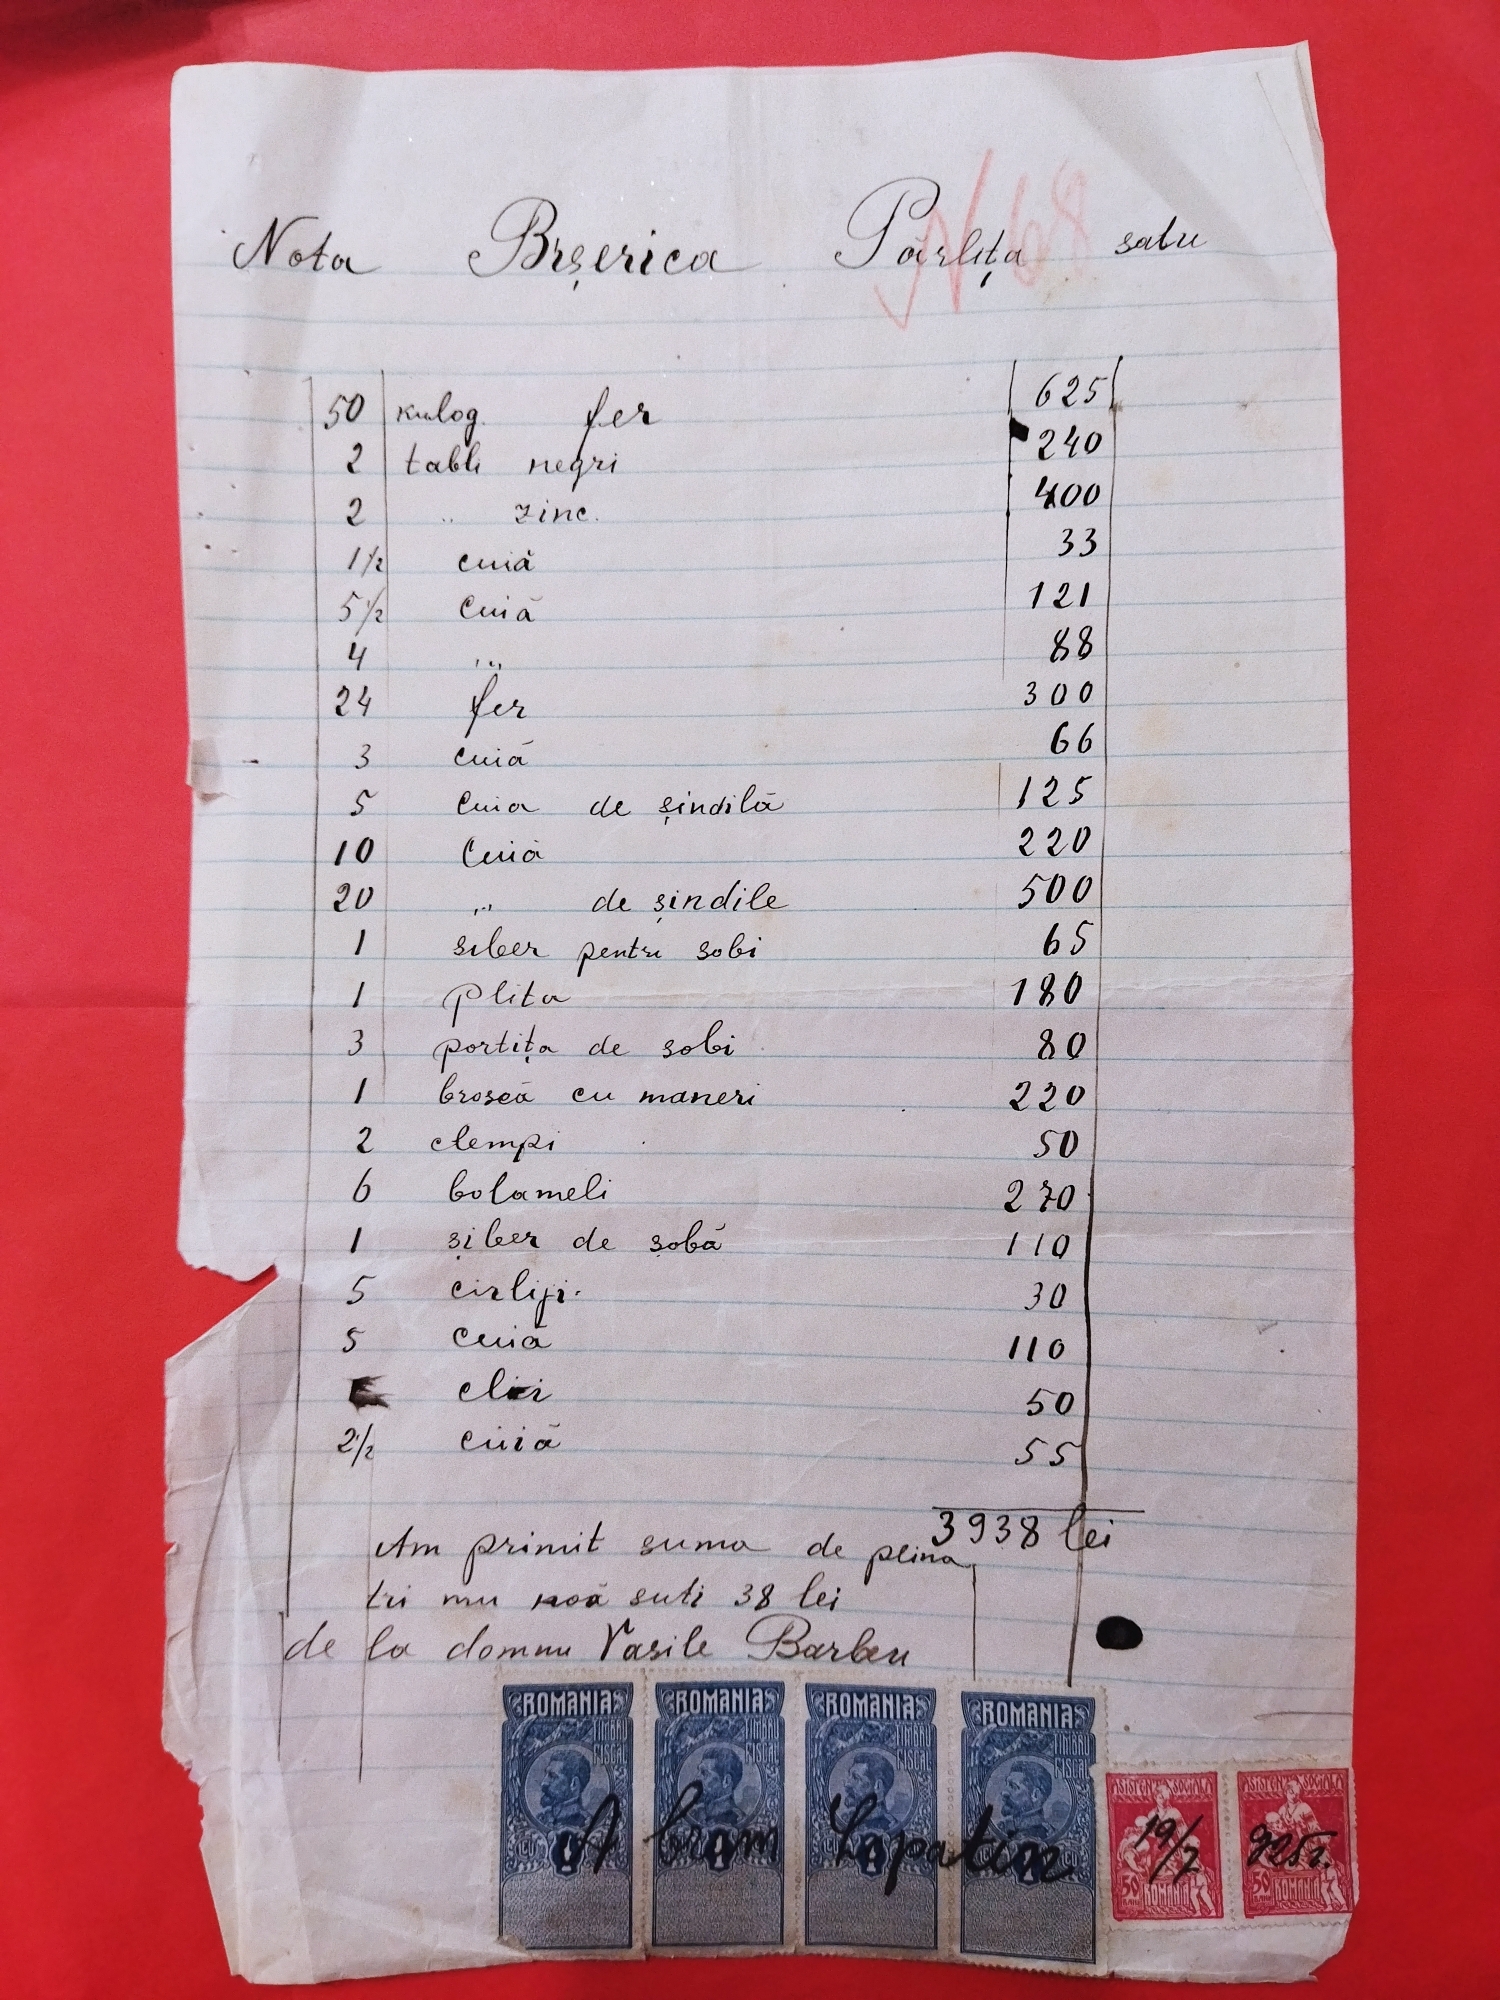 N 68
Nota Brșerica Pârlița satu
50 kulog. fer 625
2 tabli negri 240
2 „ zinc. 400
1 1/2 cuiă 33
5 1/2 cuiă 121
4 „ 88
24 fer 300
3 cuiă 66
5 cuia de șindilă 125
10 cuiă 220
20 „ de șindile 500
1 siber pentru sobi 65
1 plita 180
3 portița de sobi 80
1 broscă cu maneri 220
2 clempi 50
6 bolameli 270
1 șiber de șobă 110
5 cirliji. 30
5 cuiă 110
clei 50
2 1/2 cuiă 55
3938 lei
Am primit suma de plina
tri mu noă suti 38 lei
de la domnu Vasile Barbeu
ROMANIA ROMANIA ROMANIA ROMANIA
TIMBRU FISCAL TIMBRU FISCAL TIMBRU FISCAL TIMBRU FISCAL
ASISTENȚA SOCIALA ASISTENȚA SOCIALA
Abram Lapatin 19/7 925 г.
50 BANI ROMANIA 50 BANI ROMANIA